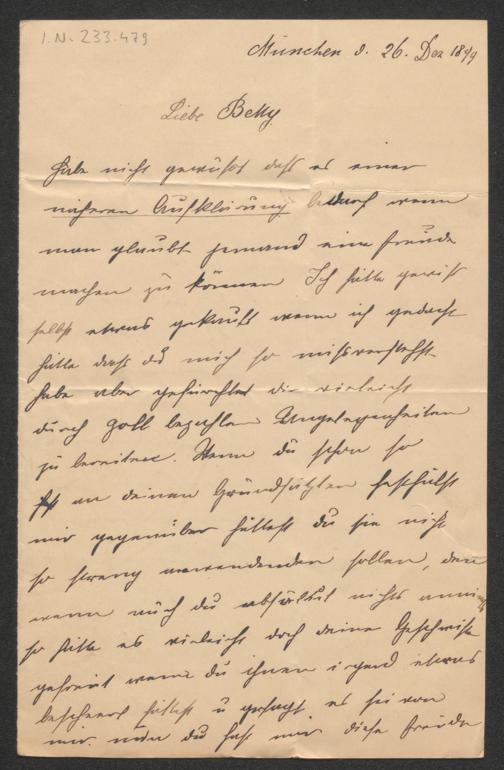 I.N. 233.479
München d. 26. Dez 1899
Liebe Betty
Habe nicht gewußt daß es einer
näheren Aufklärung bedarf wenn
man glaubt jemand eine Freude
machen zu können Ich hätte gewiß
selbst etwas gekauft wenn ich gedacht
hätte daß du mich so missverstehst
habe aber gefürchtet dir vieleicht
durch Zoll bezahlen Ungelegenheiten
zu bereiten. Wenn du schon so
an deinen Grundsätzen festhälst
mir gegenüber hättest du sie nicht
so streng anwendenden sollen, den
wenn auch du absolut nichts
so hätte es vieleicht doch deine Geschwister
gefreut wenn du ihnen irgend etwas
bescheert hättest u gesagt es sei von
mir. nun du hast mir diese Freude